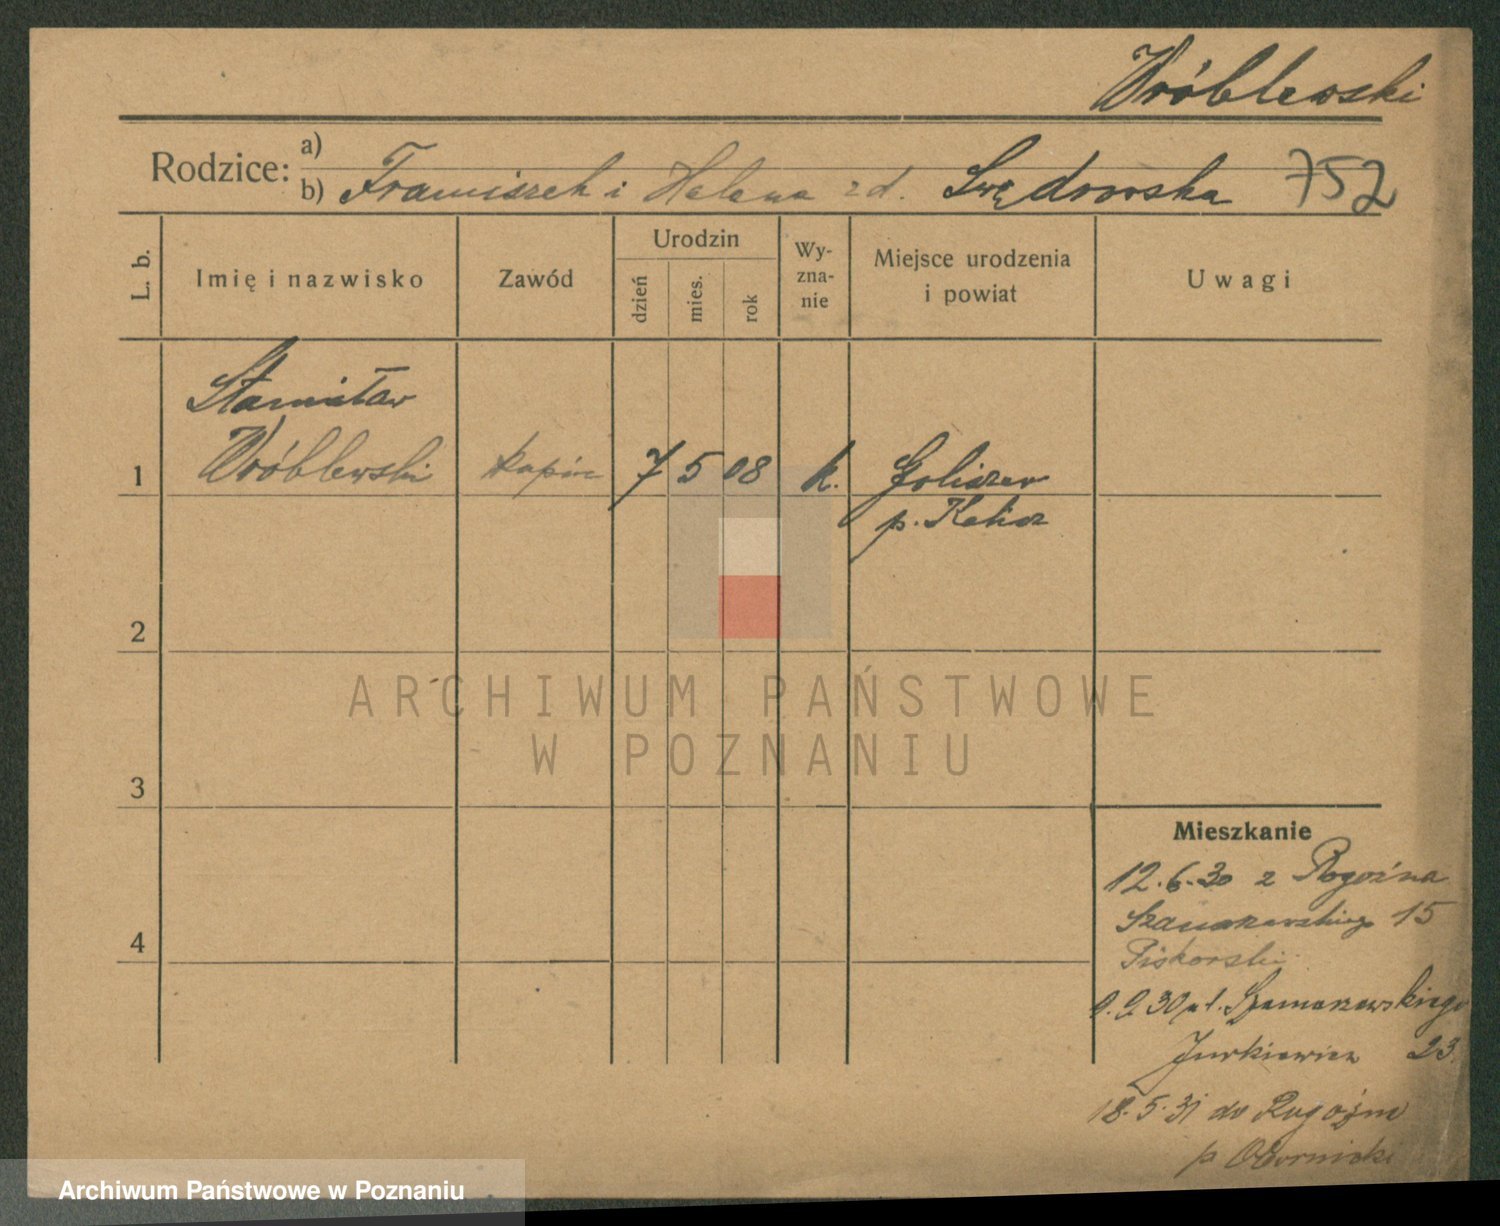 Wróblewski
Rodzice: a)
b) Franciszek i Helena z d. Swędrowska 752
L. b. Imię i nazwisko Zawód Urodzin Wy-zna-nie Miejsce urodzenia i powiat Uwagi
dzień mies. rok
Stanisław
1 Wróblewski kupiec 7 5 08 k. Goliszew
p. Kalisz
2
ARCHIWUM PAŃSTWOWE
W POZNANIU
3
Mieszkanie
12.6.30 z Rogoźna
Szamarzewskiego 15
Piskorski
4
9.9.30 ul. Szamarzewskiego
Jurkiewicz 23.
18.5.31 do Rogoźna
p. Obornicki
Archiwum Państwowe w Poznaniu